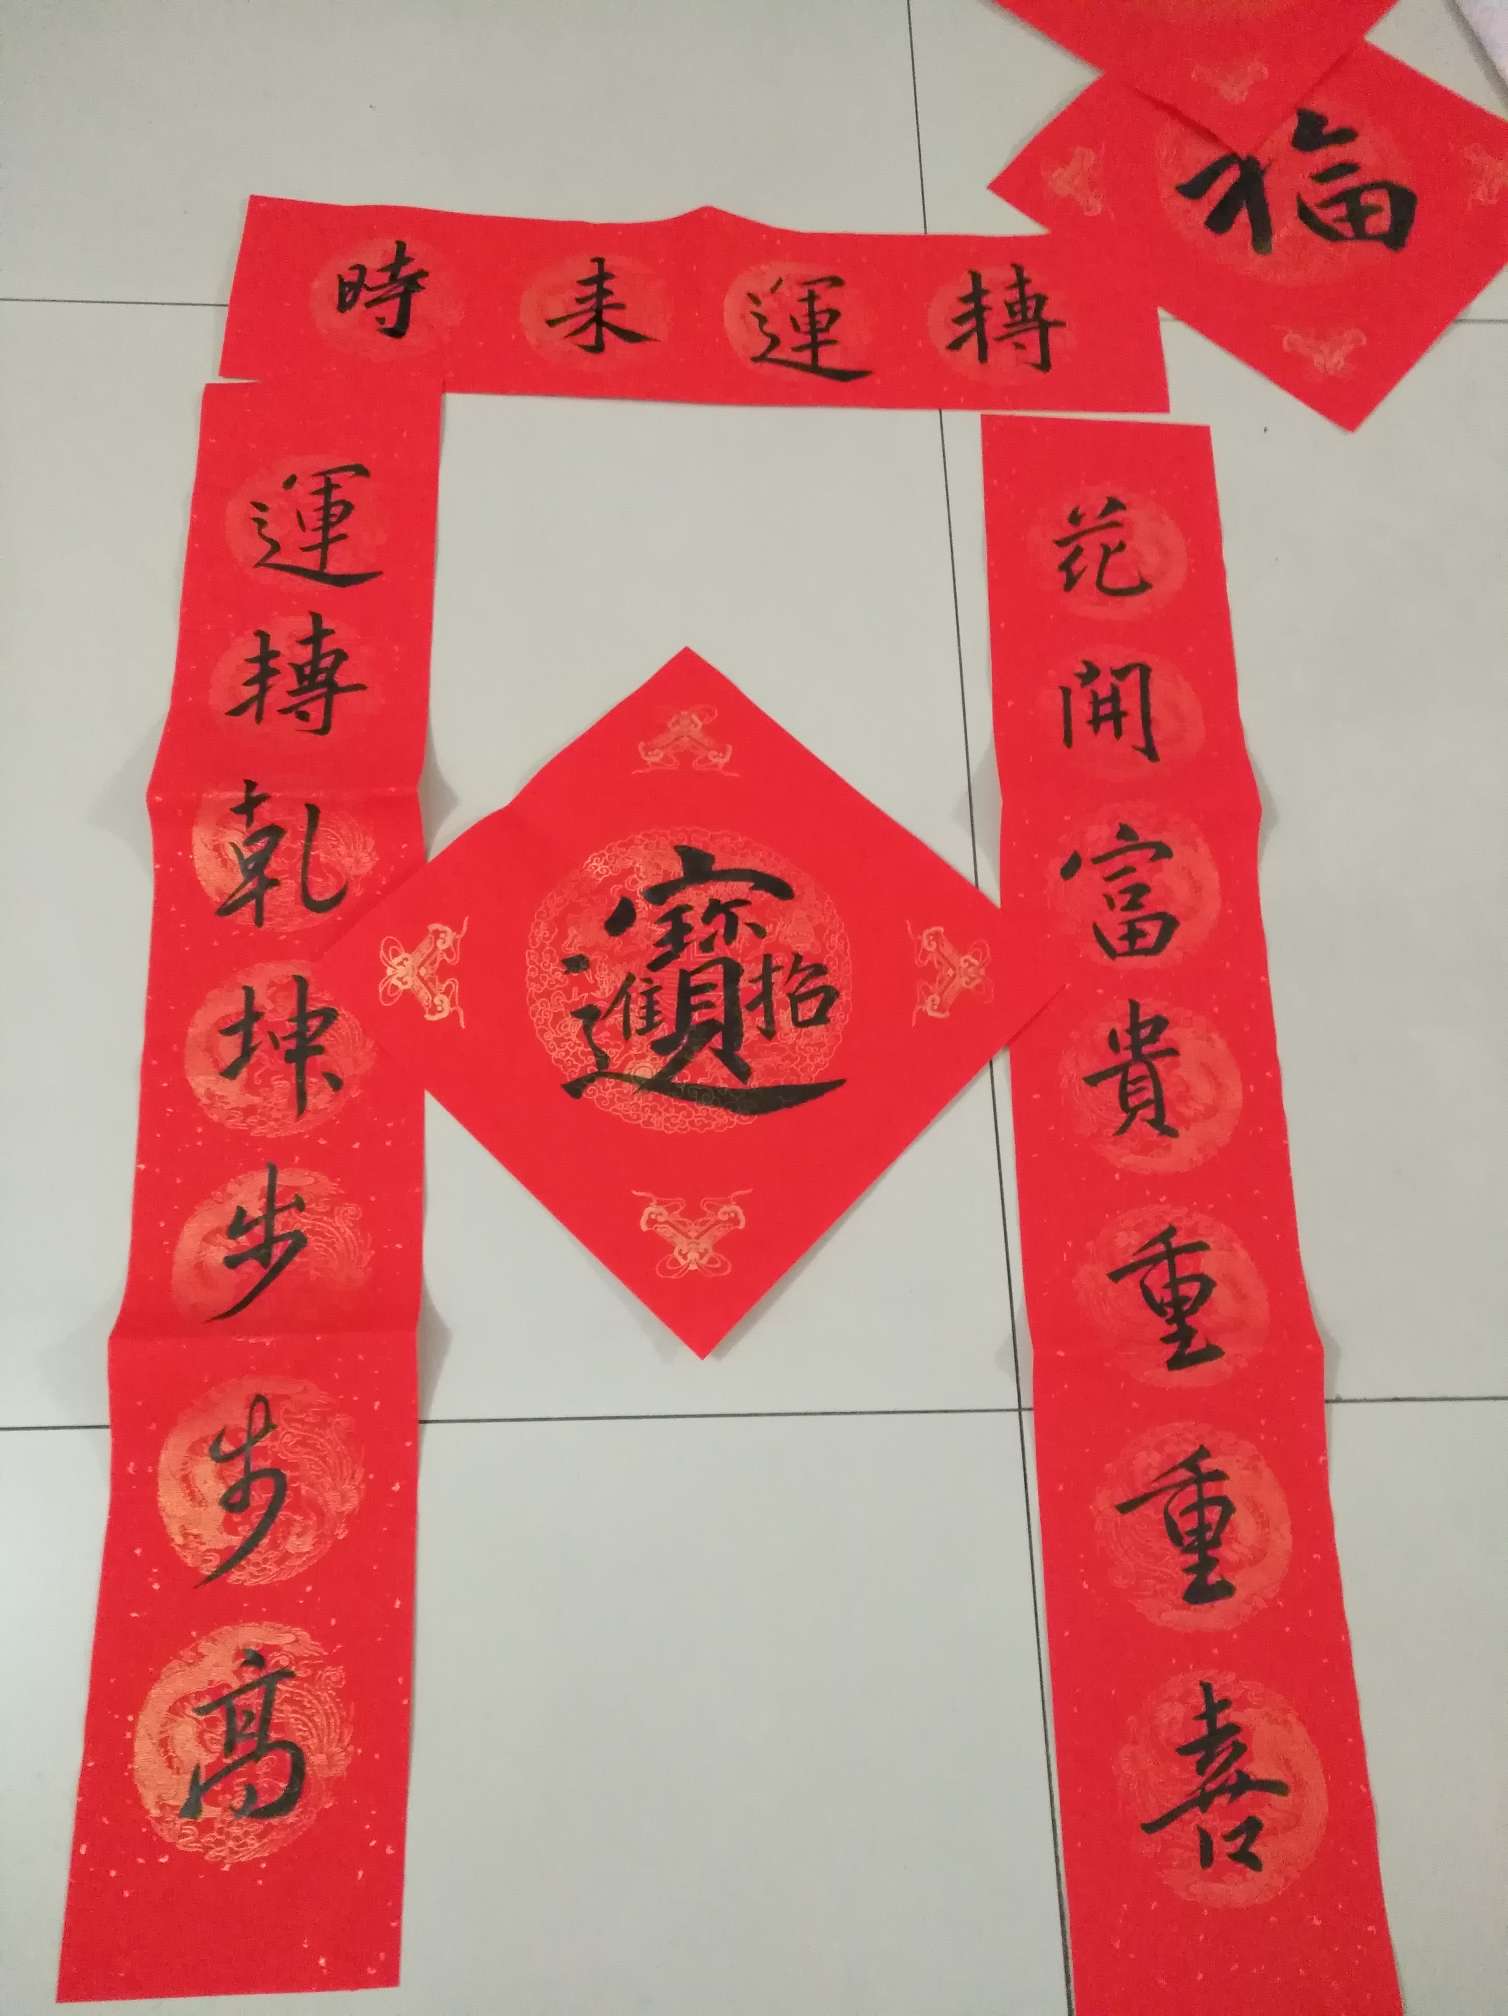 時来運轉
運轉乾坤步步高
花開富貴重重喜
招進寶
福